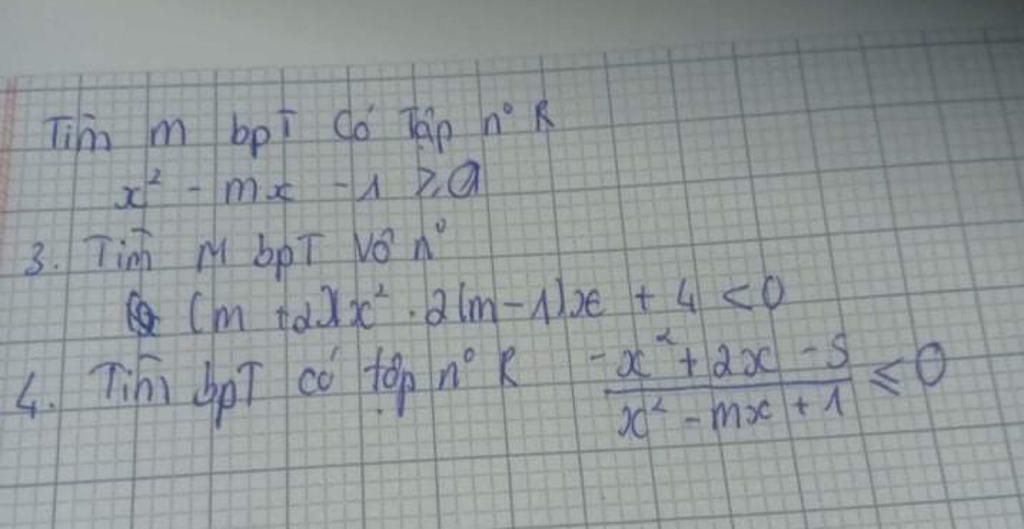 Tìm m bpT có Tập n° R
x² - mx - 1 ≥ 0
3. Tìm M bpT Vô n°
(m + 2)x² - 2(m - 1)x + 4 < 0
4. Tìm bpT có tập n° R (-x² + 2x - 5)/(x² - mx + 1) ≤ 0